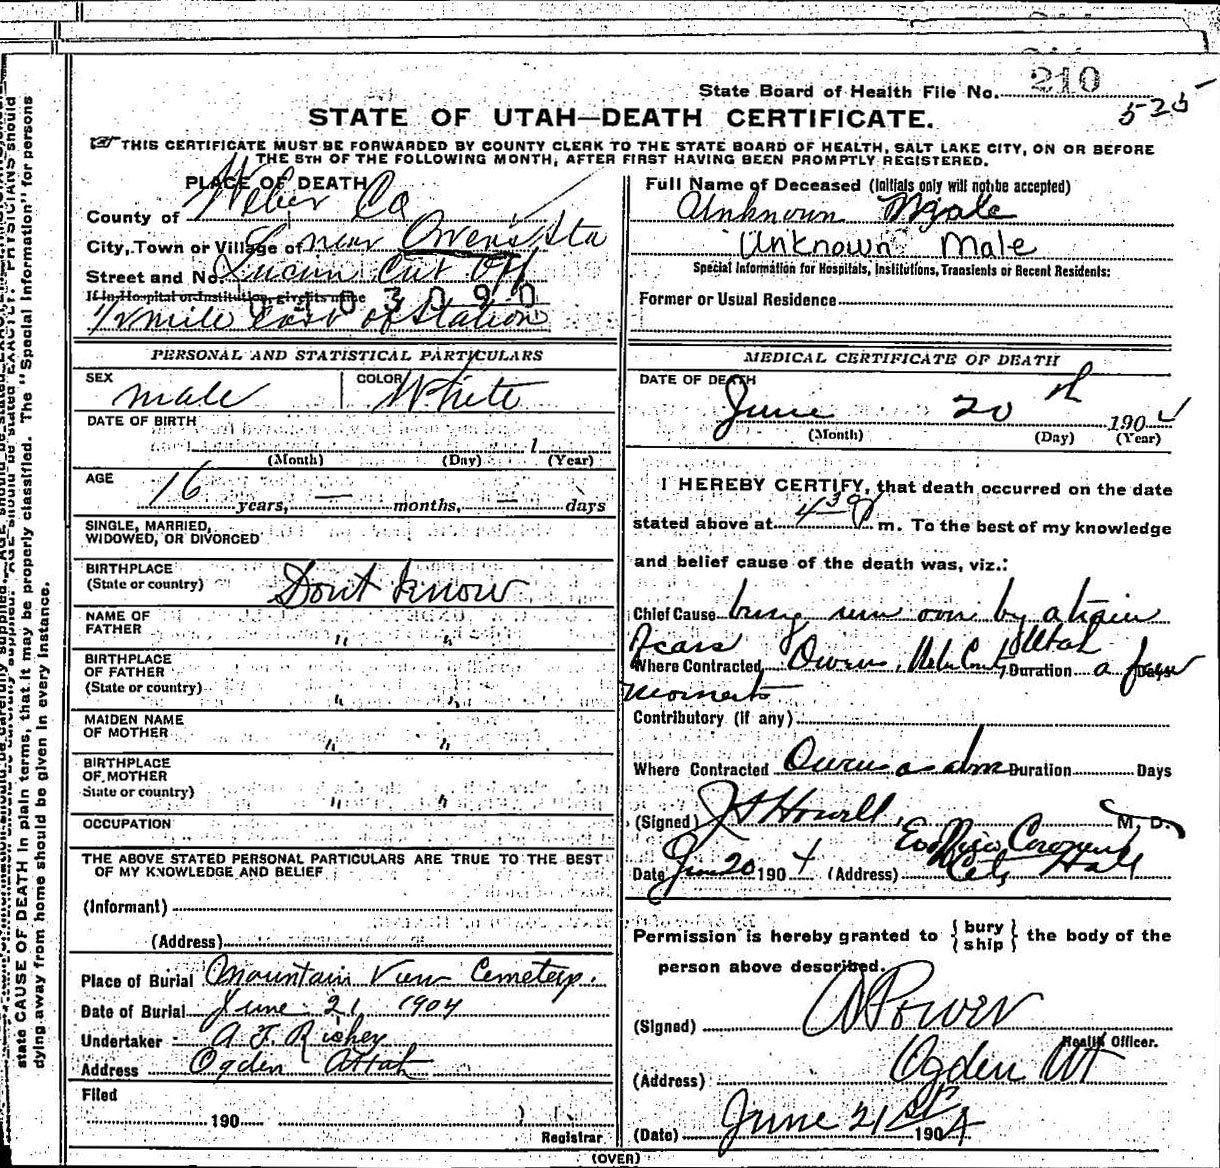 State Board of Health File No. 210
525
STATE OF UTAH—DEATH CERTIFICATE.
THIS CERTIFICATE MUST BE FORWARDED BY COUNTY CLERK TO THE STATE BOARD OF HEALTH, SALT LAKE CITY, ON OR BEFORE
THE 5TH OF THE FOLLOWING MONTH, AFTER FIRST HAVING BEEN PROMPTLY REGISTERED.
PLACE OF DEATH
County of Weber Co
City, Town or Village of near Owens Sta
Street and No. Lucin Cut Off
If in Hospital or Institution, give its name
0 2 0 3 0 9 0
1/2 mile East of Station
PERSONAL AND STATISTICAL PARTICULARS
SEX male COLOR White
DATE OF BIRTH
1
(Month) (Day) (Year)
AGE
16 years, — months, — days
SINGLE, MARRIED,
WIDOWED, OR DIVORCED
BIRTHPLACE
(State or country) Dont know
NAME OF
FATHER " "
BIRTHPLACE
OF FATHER
(State or country) " "
MAIDEN NAME
OF MOTHER " "
BIRTHPLACE
OF MOTHER
State or country) " "
OCCUPATION
THE ABOVE STATED PERSONAL PARTICULARS ARE TRUE TO THE BEST
OF MY KNOWLEDGE AND BELIEF
(Informant)
(Address)
Place of Burial Mountain View Cemetery.
Date of Burial June 21 1904
Undertaker A. F. Richey
Address Ogden Utah
Filed
190
Registrar
Full Name of Deceased (Initials only will not be accepted)
Unknown Male
Unknown Male
Special Information for Hospitals, Institutions, Transients or Recent Residents:
Former or Usual Residence
MEDICAL CERTIFICATE OF DEATH
DATE OF DEATH
June 20 th 190
(Month) (Day) (Year)
I HEREBY CERTIFY, that death occurred on the date
stated above at 4 30 P m. To the best of my knowledge
and belief cause of the death was, viz.:
Chief Cause being run over by a train
of cars Utah
Where Contracted Owens, Duration a few Days
moments
Contributory (if any)
Where Contracted Owens Duration Days
(Signed) Howell, M. D.
Ex Officio Coroner
Date Jun 20 1904 (Address) City Hall
Permission is hereby granted to {bury
ship} the body of the
person above described.
(Signed) A Power
Health Officer.
(Address) Ogden Ut
(Date) June 21st 1904
(OVER)
state CAUSE OF DEATH in plain terms, that it may be properly classified. The "Special Information" for persons
dying away from home should be given in every instance.